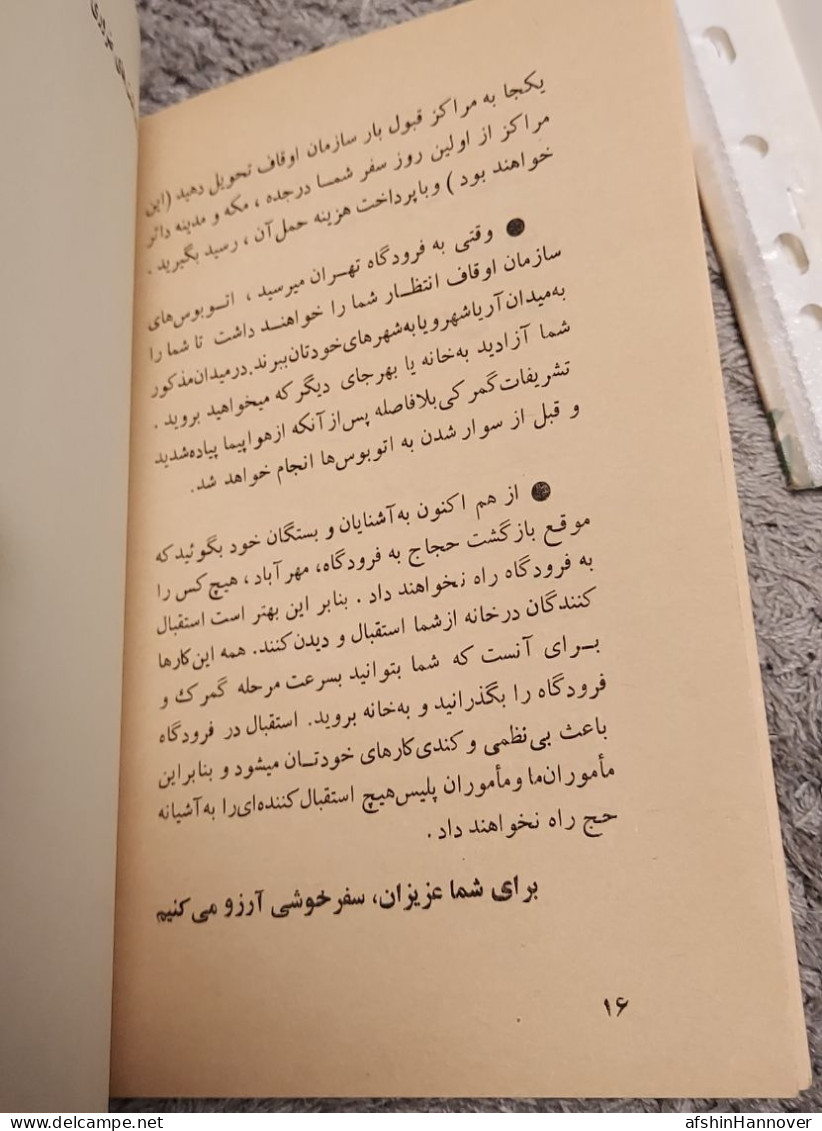 یکجا به مراکز قبول بار سازمان اوقاف تحویل دهید (این
مراکز از اولین روز سفر شمـا درجده ، مکه و مدینه دائر
خواهند بود ) و باپرداخت هزینه حمل آن ، رسید بگیرید .
● وقتی به فرودگاه تهـران میرسید ، اتـوبوس‌های
سازمان اوقاف انتظـار شما را خواهنـد داشت تا شما را
به‌میدان آریاشهر و یا به‌شهرهای خودتان ببرند. درمیدان مذکور
شما آزادید به‌خانه یا بهرجای دیگر که میخواهید بروید .
تشریفات گمرکی بلافاصله پس از آنکه از هواپیما پیاده‌شدید
و قبل از سوار شدن به اتوبوس‌ها انجام خواهد شد.
● از هم اکنون به‌آشنایان و بستگان خود بگوئید که
موقع بازگشت حجاج به فرودگاه، مهرآباد، هیچ‌کس را
به فرودگاه راه نخواهند داد . بنابر این بهتر است استقبال
کنندگان درخانه ازشما استقبال و دیدن‌کنند. همه این‌کارها
بـرای آنست که شما بتوانید بسرعت مرحله گمرک و
فرودگاه را بگذرانید و به‌خانه بروید. استقبال در فرودگاه
باعث بی‌نظمی و کندی‌کارهای خودتـان میشود و بنابراین
مأموران‌ما و مأموران پلیس هیچ استقبال کننده‌ای‌را به‌آشیانه
حج راه نخواهند داد .
برای شما عزیزان، سفر خوشی آرزو می‌کنیم
۱۶
afshinHannover